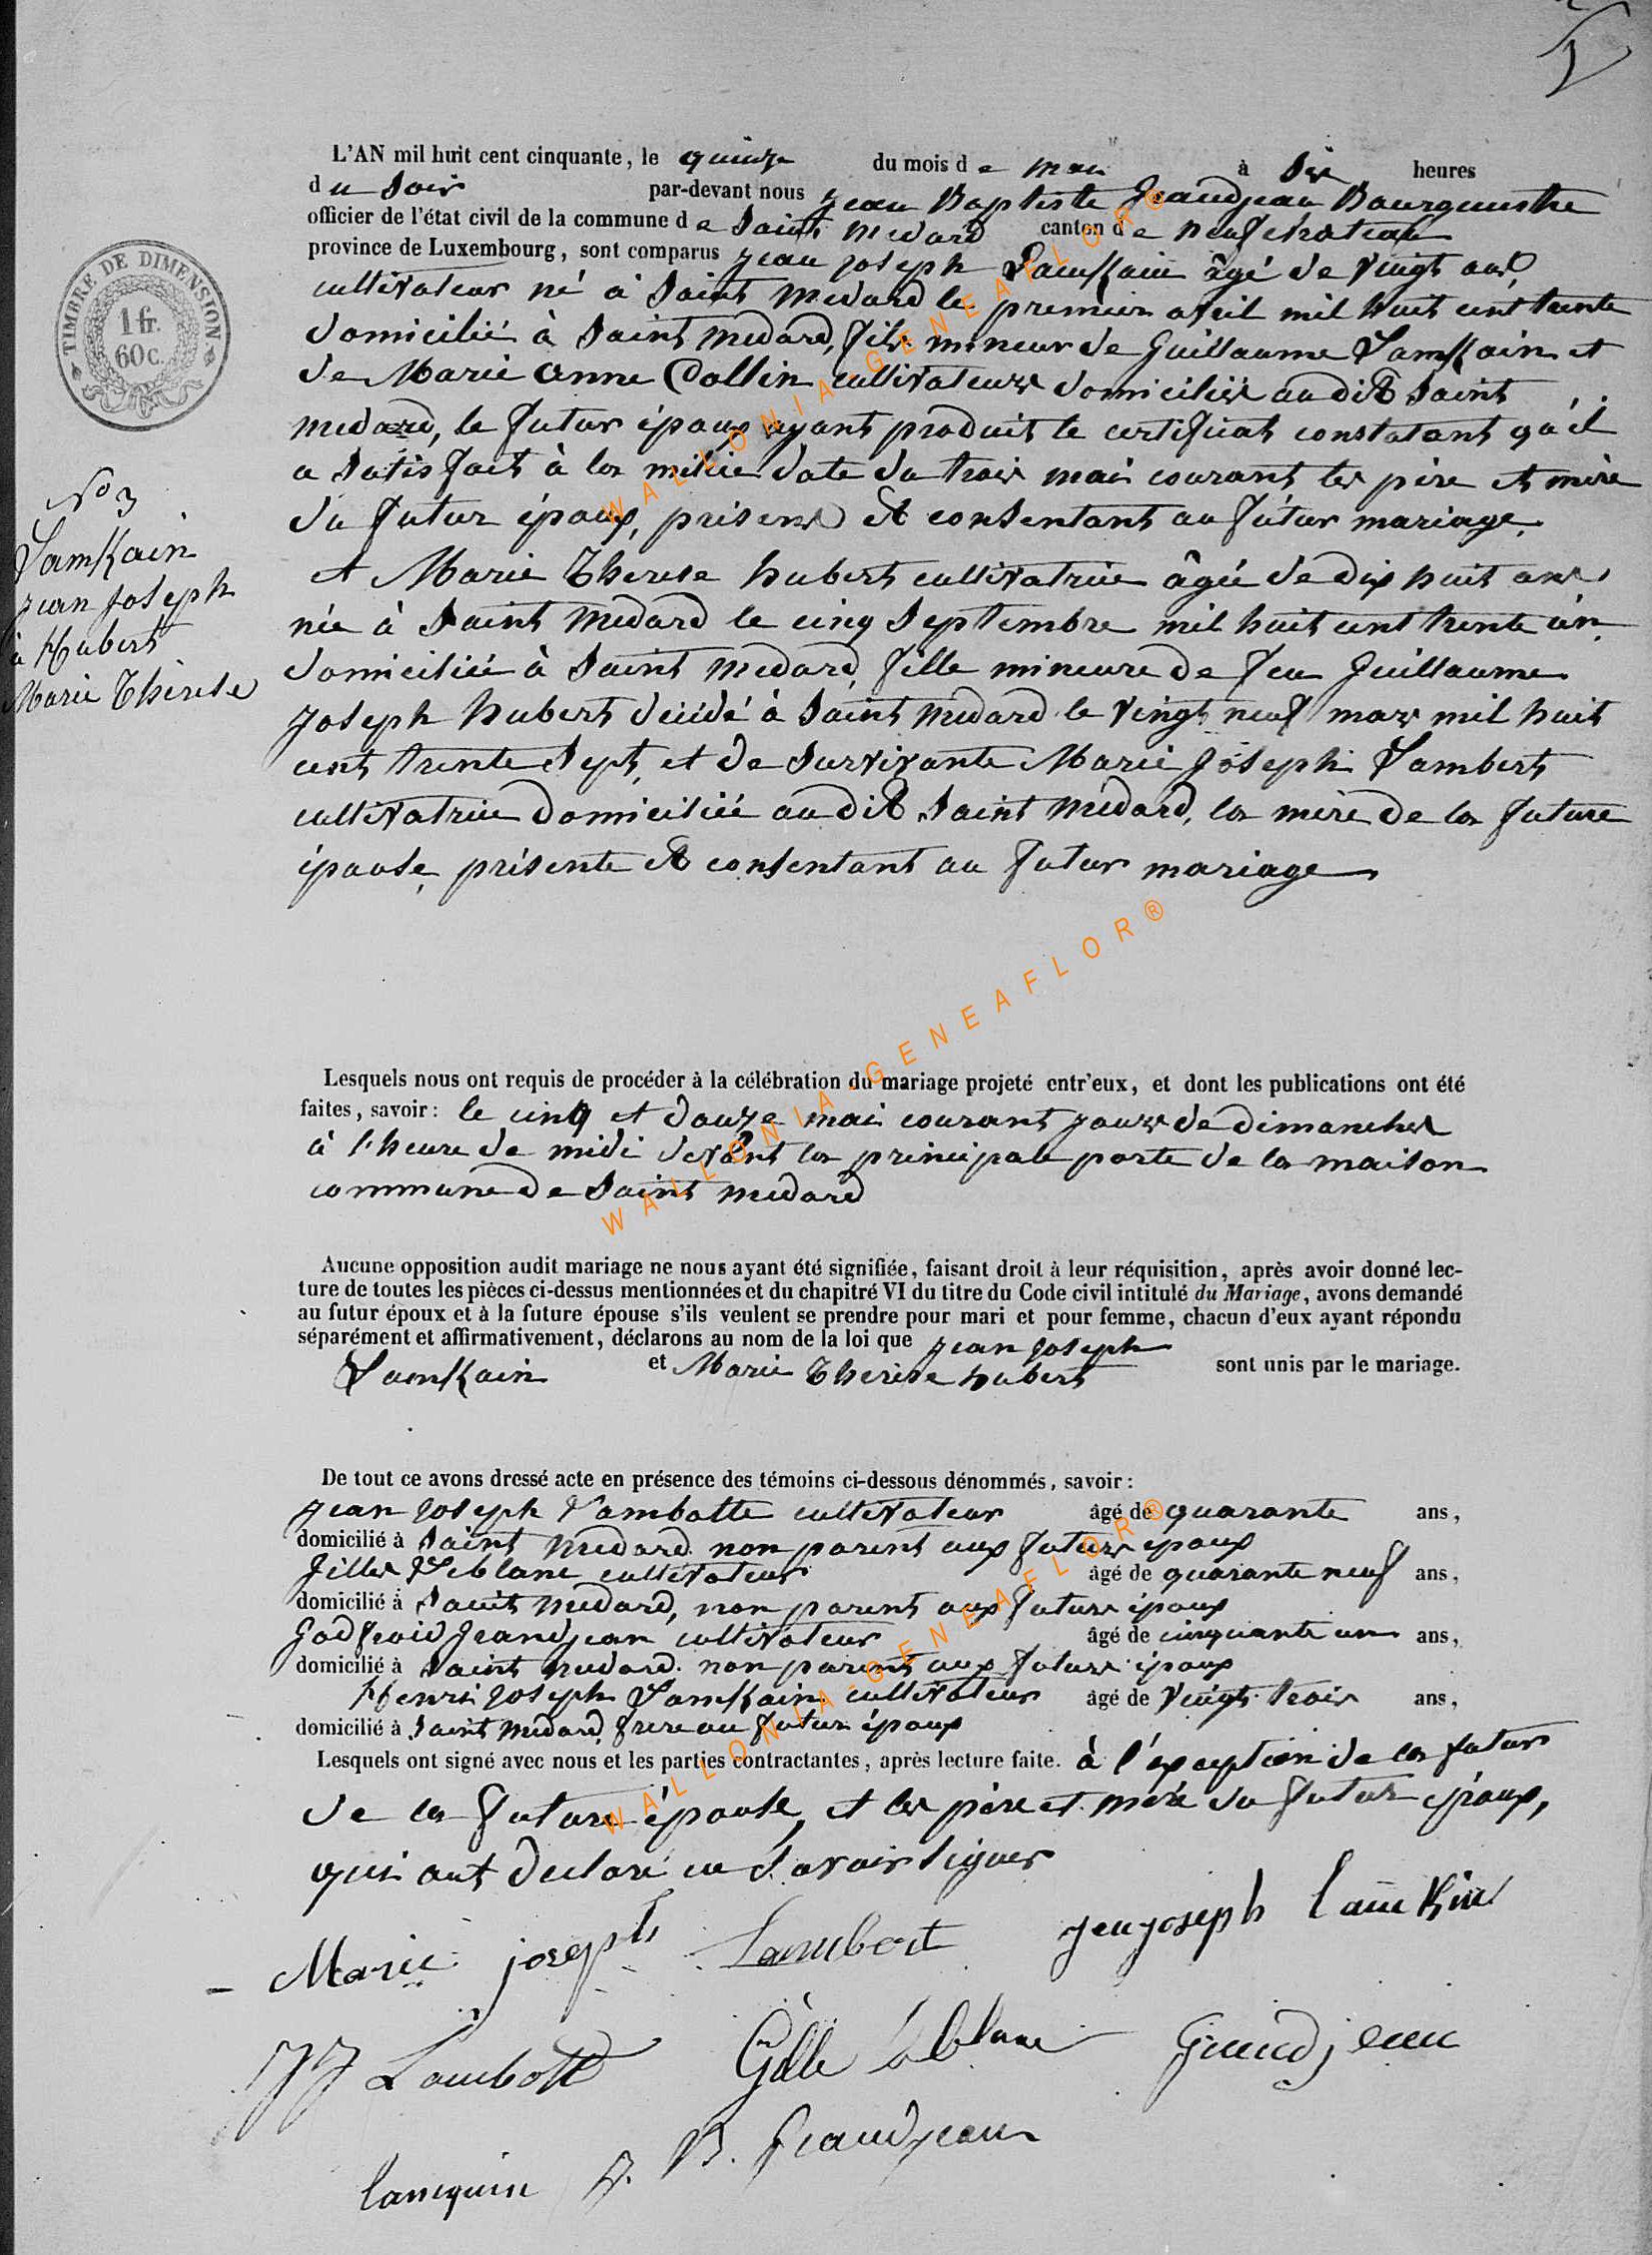 L'AN mil huit cent cinquante, le quinze du mois de mai à six heures
du soir par-devant nous Jean Baptiste Grandjean Bourguestre
officier de l'état civil de la commune de Saint Medard canton de Neufchateau
province de Luxembourg, sont comparus Jean Joseph Lamkain âgé de vingt ans
cultivateur né à Saint Medard le premier avril mil huit cent trente
domicilié à Saint Medard, fils mineur de Guillaume Lamkain et
de Marie Anne Collin cultivateurs domiciliés audit Saint
Medard, le futur époux ayant produit le certificat constatant qu'il
a satisfait à la milice date du trois mai courant les père et mère
du futur époux, présens et consentant au futur mariage.
et Marie Therese Hubert cultivatrice âgée de dix huit ans,
née à Saint Medard le cinq Septembre mil huit cent trente un
domiciliée à Saint Medard, fille mineure de feu Guillaume
Joseph Hubert décédé à Saint Medard le vingt neuf mars mil huit
cent trente sept, et de survivante Marie Joseph Lambert
cultivatrice domiciliée audit Saint Medard, la mère de la future
épouse, présente et consentant au futur mariage.
TIMBRE DE DIMENSION.
1 fr.
60 c.
No 3
Lamkain
Jean Joseph
à Hubert
Marie Thérese
Lesquels nous ont requis de procéder à la célébration du mariage projeté entr'eux, et dont les publications ont été
faites, savoir: le cinq et douze mai courant jours de dimanches
à l'heure de midi devant la principale porte de la maison
commune de Saint Medard
Aucune opposition audit mariage ne nous ayant été signifiée, faisant droit à leur réquisition, après avoir donné lec-
ture de toutes les pièces ci-dessus mentionnées et du chapitre VI du titre du Code civil intitulé du Mariage, avons demandé
au futur époux et à la future épouse s'ils veulent se prendre pour mari et pour femme, chacun d'eux ayant répondu
séparément et affirmativement, déclarons au nom de la loi que Jean Joseph
Lamkain et Marie Thérèse Hubert sont unis par le mariage.
De tout ce avons dressé acte en présence des témoins ci-dessous dénommés, savoir:
Jean Joseph Lambotte cultivateur âgé de quarante ans,
domicilié à Saint Medard non parent aux futurs époux
Gilles Leblanc cultivateur âgé de quarante neuf ans,
domicilié à Saint Medard, non parent aux futurs époux
Godfroid Grandjean cultivateur âgé de cinquante un ans,
domicilié à Saint Medard. non parent aux futurs époux
Henri Joseph Lamkain cultivateur âgé de vingt trois ans,
domicilié à Saint Medard, frere au futur époux
Lesquels ont signé avec nous et les parties contractantes, après lecture faite. à l'exception de la futur
de la future épouse, et les père et mère du futur époux,
qui ont declaré ne savoir signer
Marie joseph Lambert Jenjoseph Lamkin
JJ Lambotte Gille Leblanc Grandjean
Lamquin J. B. Grandjean
WALLONIA-GENEAFLOR®
WALLONIA-GENEAFLOR®
WALLONIA-GENEAFLOR®